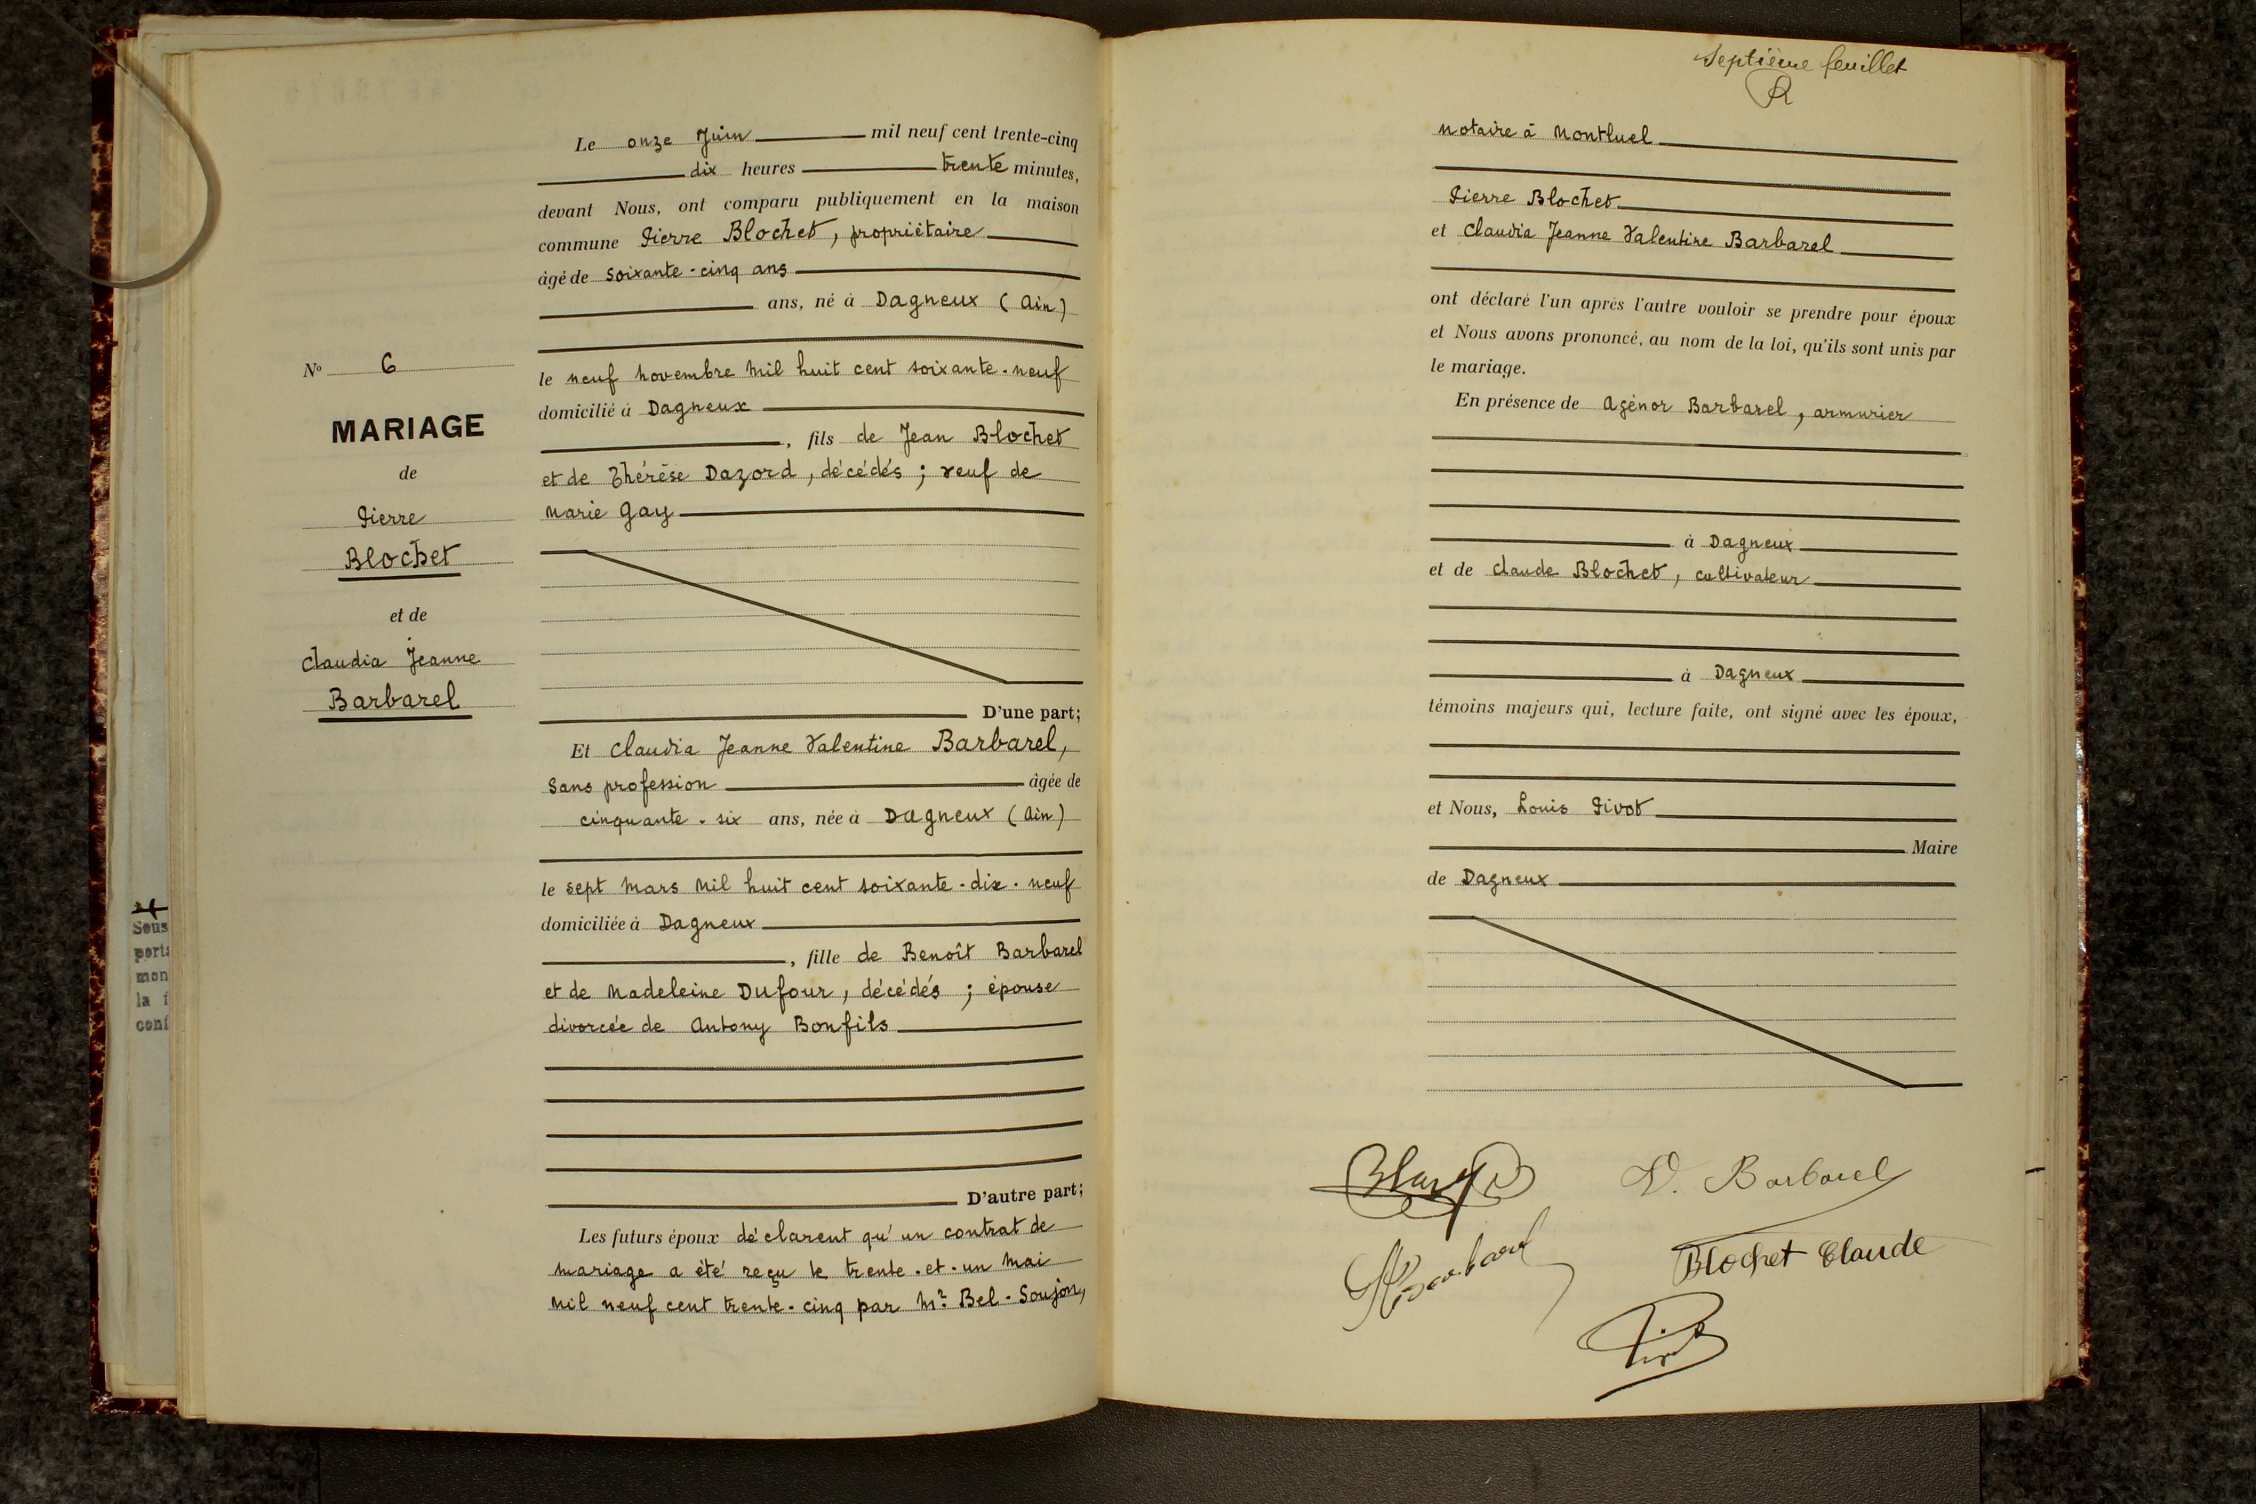 Le onze Juin mil neuf cent trente-cinq
dix heures trente minutes,
devant Nous, ont comparu publiquement en la maison
commune Pierre Blochet, propriétaire
âgé de soixante-cinq ans
ans, né à Dagneux (Ain)
le neuf novembre mil huit cent soixante-neuf
domicilié à Dagneux
, fils de Jean Blochet
et de Thérèse Dazord, décédés ; veuf de
Marie Gay
D'une part;
Et Claudia Jeanne Valentine Barbarel,
sans profession âgée de
cinquante-six ans, née à Dagneux (Ain)
le sept mars mil huit cent soixante-dix-neuf
domiciliée à Dagneux
, fille de Benoît Barbarel
et de Madeleine Dufour, décédés ; épouse
divorcée de Antony Bonfils
D'autre part;
Les futurs époux déclarent qu'un contrat de
mariage a été reçu le trente-et-un mai
mil neuf cent trente-cinq par Me Bel-Soujon,
No 6
MARIAGE
de
Pierre
Blochet
et de
Claudia Jeanne
Barbarel
Sous
mon
la f
conf
Septième feuillet
notaire à Montluel
Pierre Blochet
et Claudia Jeanne Valentine Barbarel
ont déclaré l'un après l'autre vouloir se prendre pour époux
et Nous avons prononcé, au nom de la loi, qu'ils sont unis par
le mariage.
En présence de Agénor Barbarel, armurier
à Dagneux
et de Claude Blochet, cultivateur
à Dagneux
témoins majeurs qui, lecture faite, ont signé avec les époux,
et Nous, Louis Pivot
Maire
de Dagneux
V. Barbarel
Blochet Claude
Pivot